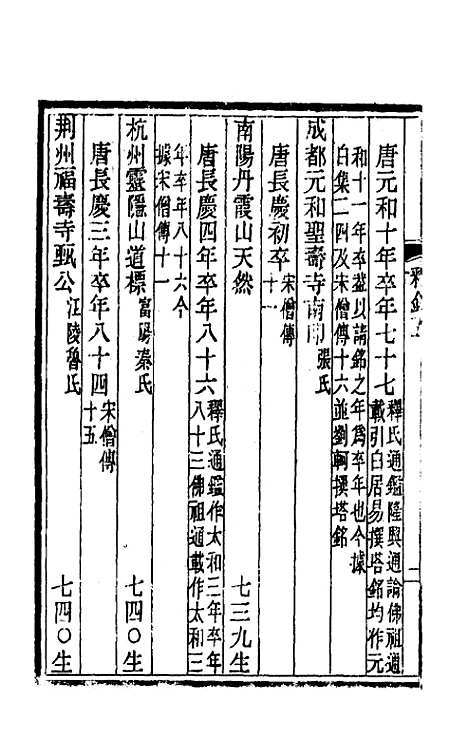 唐元和十年卒年七十七釋氏通鑑隆興通論佛祖通
載引白居易撰塔銘均作元
和十一年卒葢以請銘之年爲卒年也今據
白集二四及宋僧傳十六並劉軻撰塔銘
成都元和聖壽寺南印張氏
唐長慶初卒宋僧傳
十一
南陽丹霞山天然 七三九生
唐長慶四年卒年八十六釋氏通鑑作太和三年卒年
八十三佛祖通載作太和三
年卒年八十六今
據宋僧傳十一
杭州靈隱山道標富陽秦氏 七四〇生
唐長慶三年卒年八十四宋僧傳
十五
荆州福壽寺甄公江陵魯氏 七四〇生